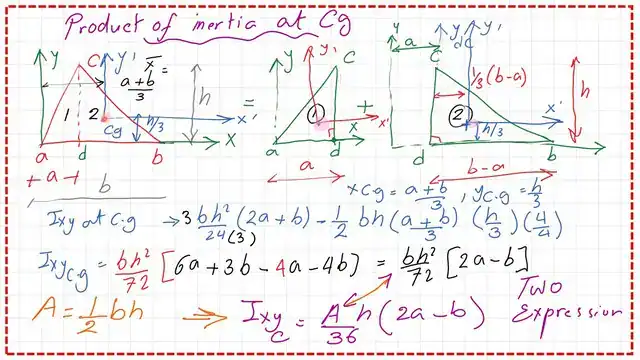 Product of inertia at Cg
y
C
y'
x̄ =
(a+b)/3
1
2
Cg
h/3
x'
x
h
a
d
b
+a+
b
=
y
y1
C
1
x'
x
a
d
a
+
y
a
y
dc
y'
C
1/3(b-a)
2
h/3
x'
h
d
b
b-a
xCg = (a+b)/3 , yC.g = h/3
Ixy at C.g → 3bh²/24(3) (2a+b) - 1/2 bh (a+b)/3 (h/3)(4/4)
IxyC.g = bh²/72 [6a+3b-4a-4b] = bh²/72 [2a-b]
A = 1/2 bh → IxyC = A h/36 (2a-b)
Two
Expression